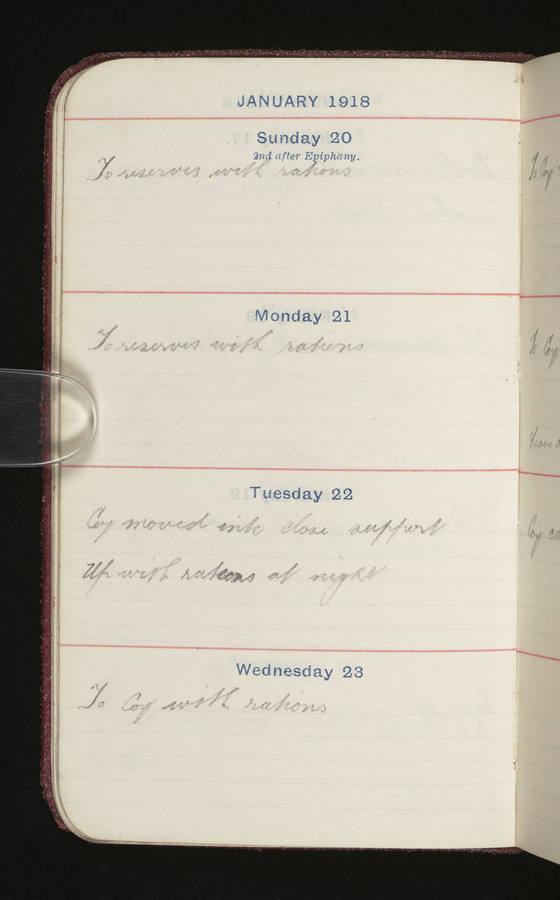 JANUARY 1918
Sunday 20
2nd after Epiphany.
To reserves with rations
Monday 21
To reserves with rations
Tuesday 22
Coy moved into close support
Up with rations at night
Wednesday 23
To Coy with rations
To Coy
To Coy
Leave
Coy